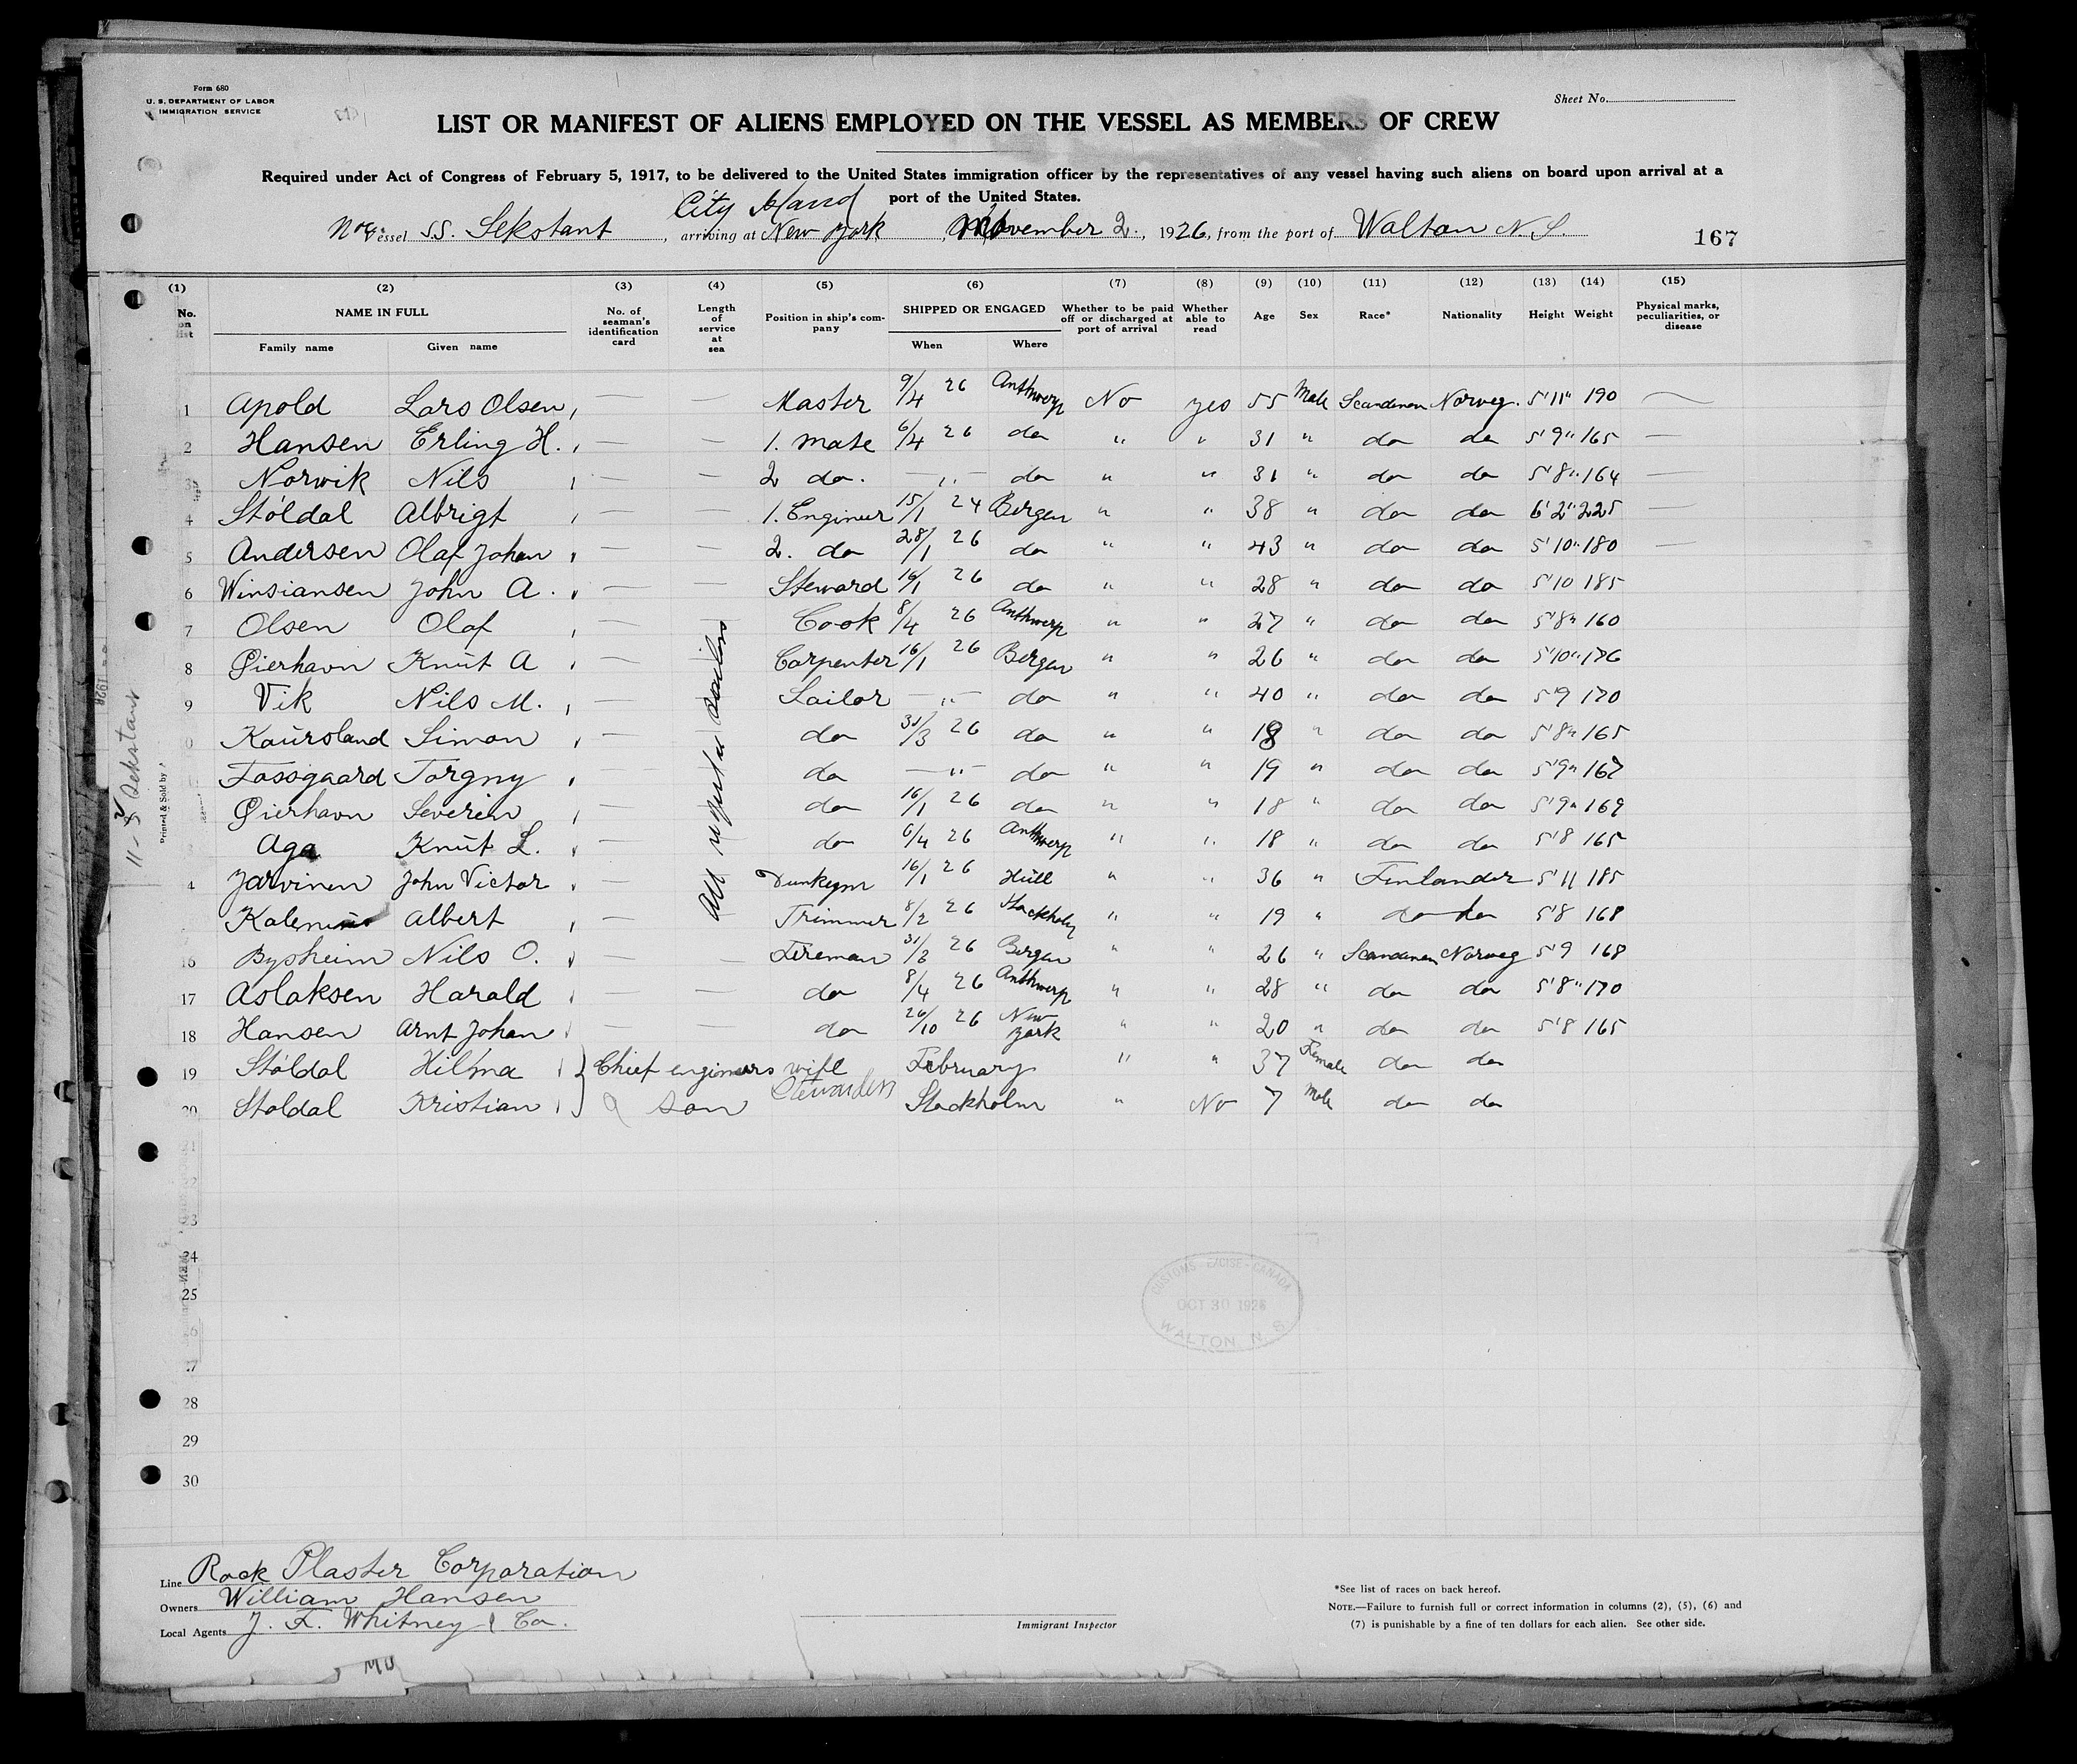 Form 680
U. S. DEPARTMENT OF LABOR
IMMIGRATION SERVICE
Sheet No.
LIST OR MANIFEST OF ALIENS EMPLOYED ON THE VESSEL AS MEMBERS OF CREW
Required under Act of Congress of February 5, 1917, to be delivered to the United States immigration officer by the representatives of any vessel having such aliens on board upon arrival at a
port of the United States.
City Island
Nor. Vessel SS. Sekstant, arriving at New York, November 2., 1926, from the port of Walton N. S.
167
(1) (2) (3) (4) (5) (6) (7) (8) (9) (10) (11) (12) (13) (14) (15)
No. on list NAME IN FULL Family name Given name No. of seaman's identification card Length of service at sea Position in ship's company SHIPPED OR ENGAGED When Where Whether to be paid off or discharged at port of arrival Whether able to read Age Sex Race* Nationality Height Weight Physical marks, peculiarities, or disease
1 Apold Lars Olsen, — — Master 9/4 26 Anthwerp No yes 55 Male Scandenen Norweg. 5'11" 190 —
2 Hansen Erling H. — — 1. mate 6/4 26 do " " 31 " do do 5'9" 165 —
3 Norwik Nils — — 2 do. — " — do " " 31 " do do 5'8" 164 —
4 Stöldal Albrigt — — 1. Engineer 15/1 24 Bergen " " 38 " do do 6'2" 225 —
5 Andersen Olaf Johan — — 2. do 28/1 26 do " " 43 " do do 5'10" 180 —
6 Winsiansen John A. — — Steward 16/1 26 do " " 28 " do do 5'10 185
7 Olsen Olaf — Cook 8/4 26 Anthwerp " " 27 " do do 5'8" 160
8 Gierhavn Knut A — Carpenter 16/1 26 Bergen " " 26 " do do 5'10" 176
9 Vik Nils M. — Sailor — " — do " " 40 " do do 5'9 170
0 Kaursland Simon — do 31/3 26 do " " 18 " do do 5'8" 165
Fossgaard Torgny — do — " — do " " 19 " do do 5'9" 167
Gierhavn Severin — do 16/1 26 do " " 18 " do do 5'9" 169
3 Aga Knut L. — do 6/4 26 Anthwerp " " 18 " do do 5'8 165
4 Jarvinen John Victor — Dunkeym 16/1 26 Hull " " 36 " Finlander 5'11 185
Albert — Trimmer 8/2 26 Stockholm " " 19 " do do 5'8 168
16 Bysheim Nils O. — — Fireman 31/3 26 Bergen " " 26 " Scandenen Norweg 5'9 168
17 Aslaksen Harald — — do 8/4 26 Anthwerp " " 28 " do do 5'8" 170
18 Hansen Arnt Johan — — do 26/10 26 New York " " 20 " do do 5'8 165
19 Stöldal Hilma Chief engineers wife February " " 37 Female do do
Stewardess
20 Stoldal Kristian son Stockholm " No 7 Male do do
21
22
23
24
25
26
27
28
29
30
All regular sailors
11-2 Sekstant
Printed & Sold by
CUSTOMS EXCISE - CANADA
OCT 30 1926
WALTON N. S.
Line Rock Plaster Corporation
Owners William Hansen
Local Agents J. F. Whitney & Co.
Immigrant Inspector
*See list of races on back hereof.
NOTE.—Failure to furnish full or correct information in columns (2), (5), (6) and
(7) is punishable by a fine of ten dollars for each alien. See other side.